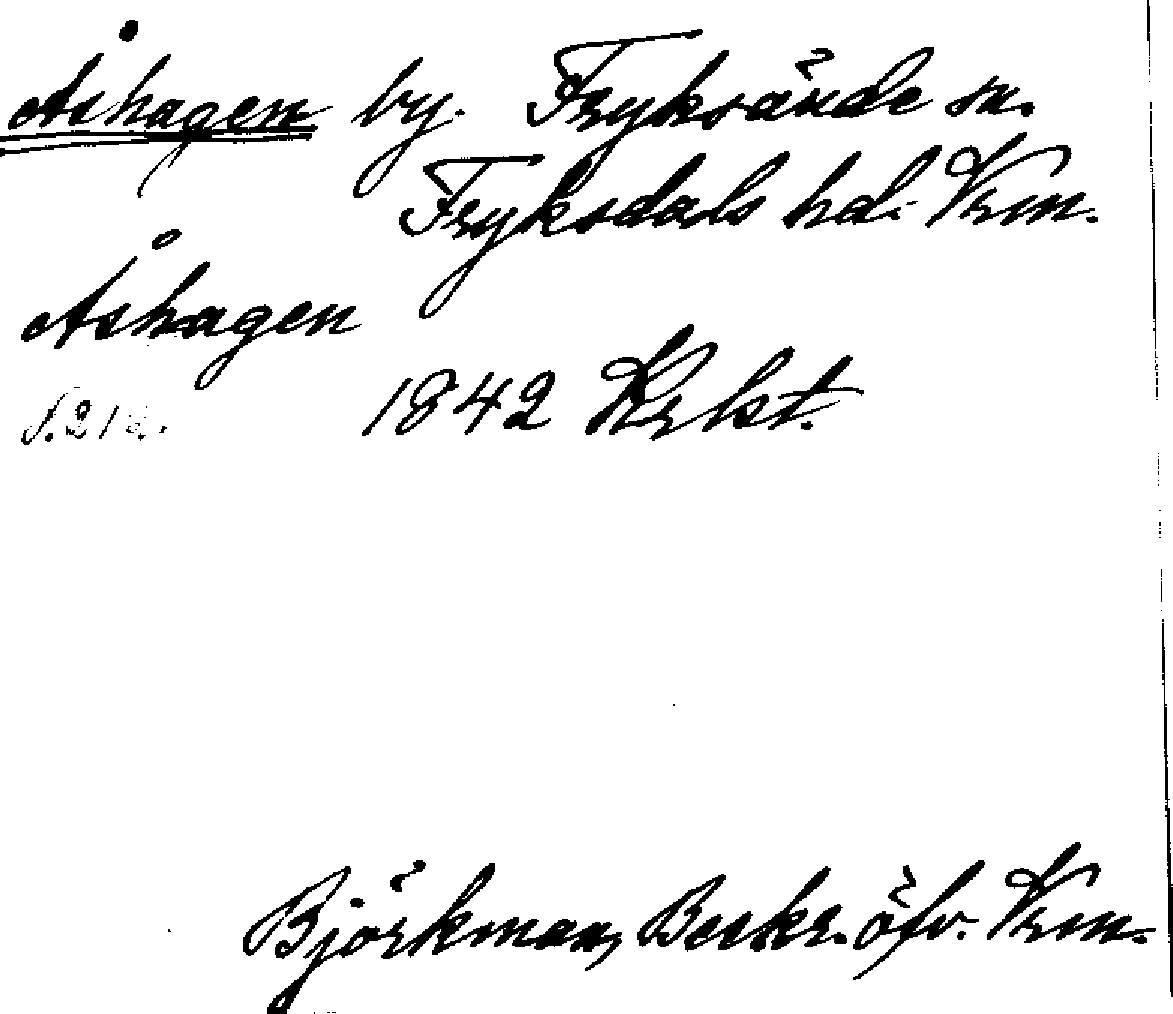 Åshagen by. Fryksände sn.
Fryksdals hd. Vrm.
Åshagen
s. 212.
1842 Krlst.
Björkman, Beskr. öfv. Vrm.